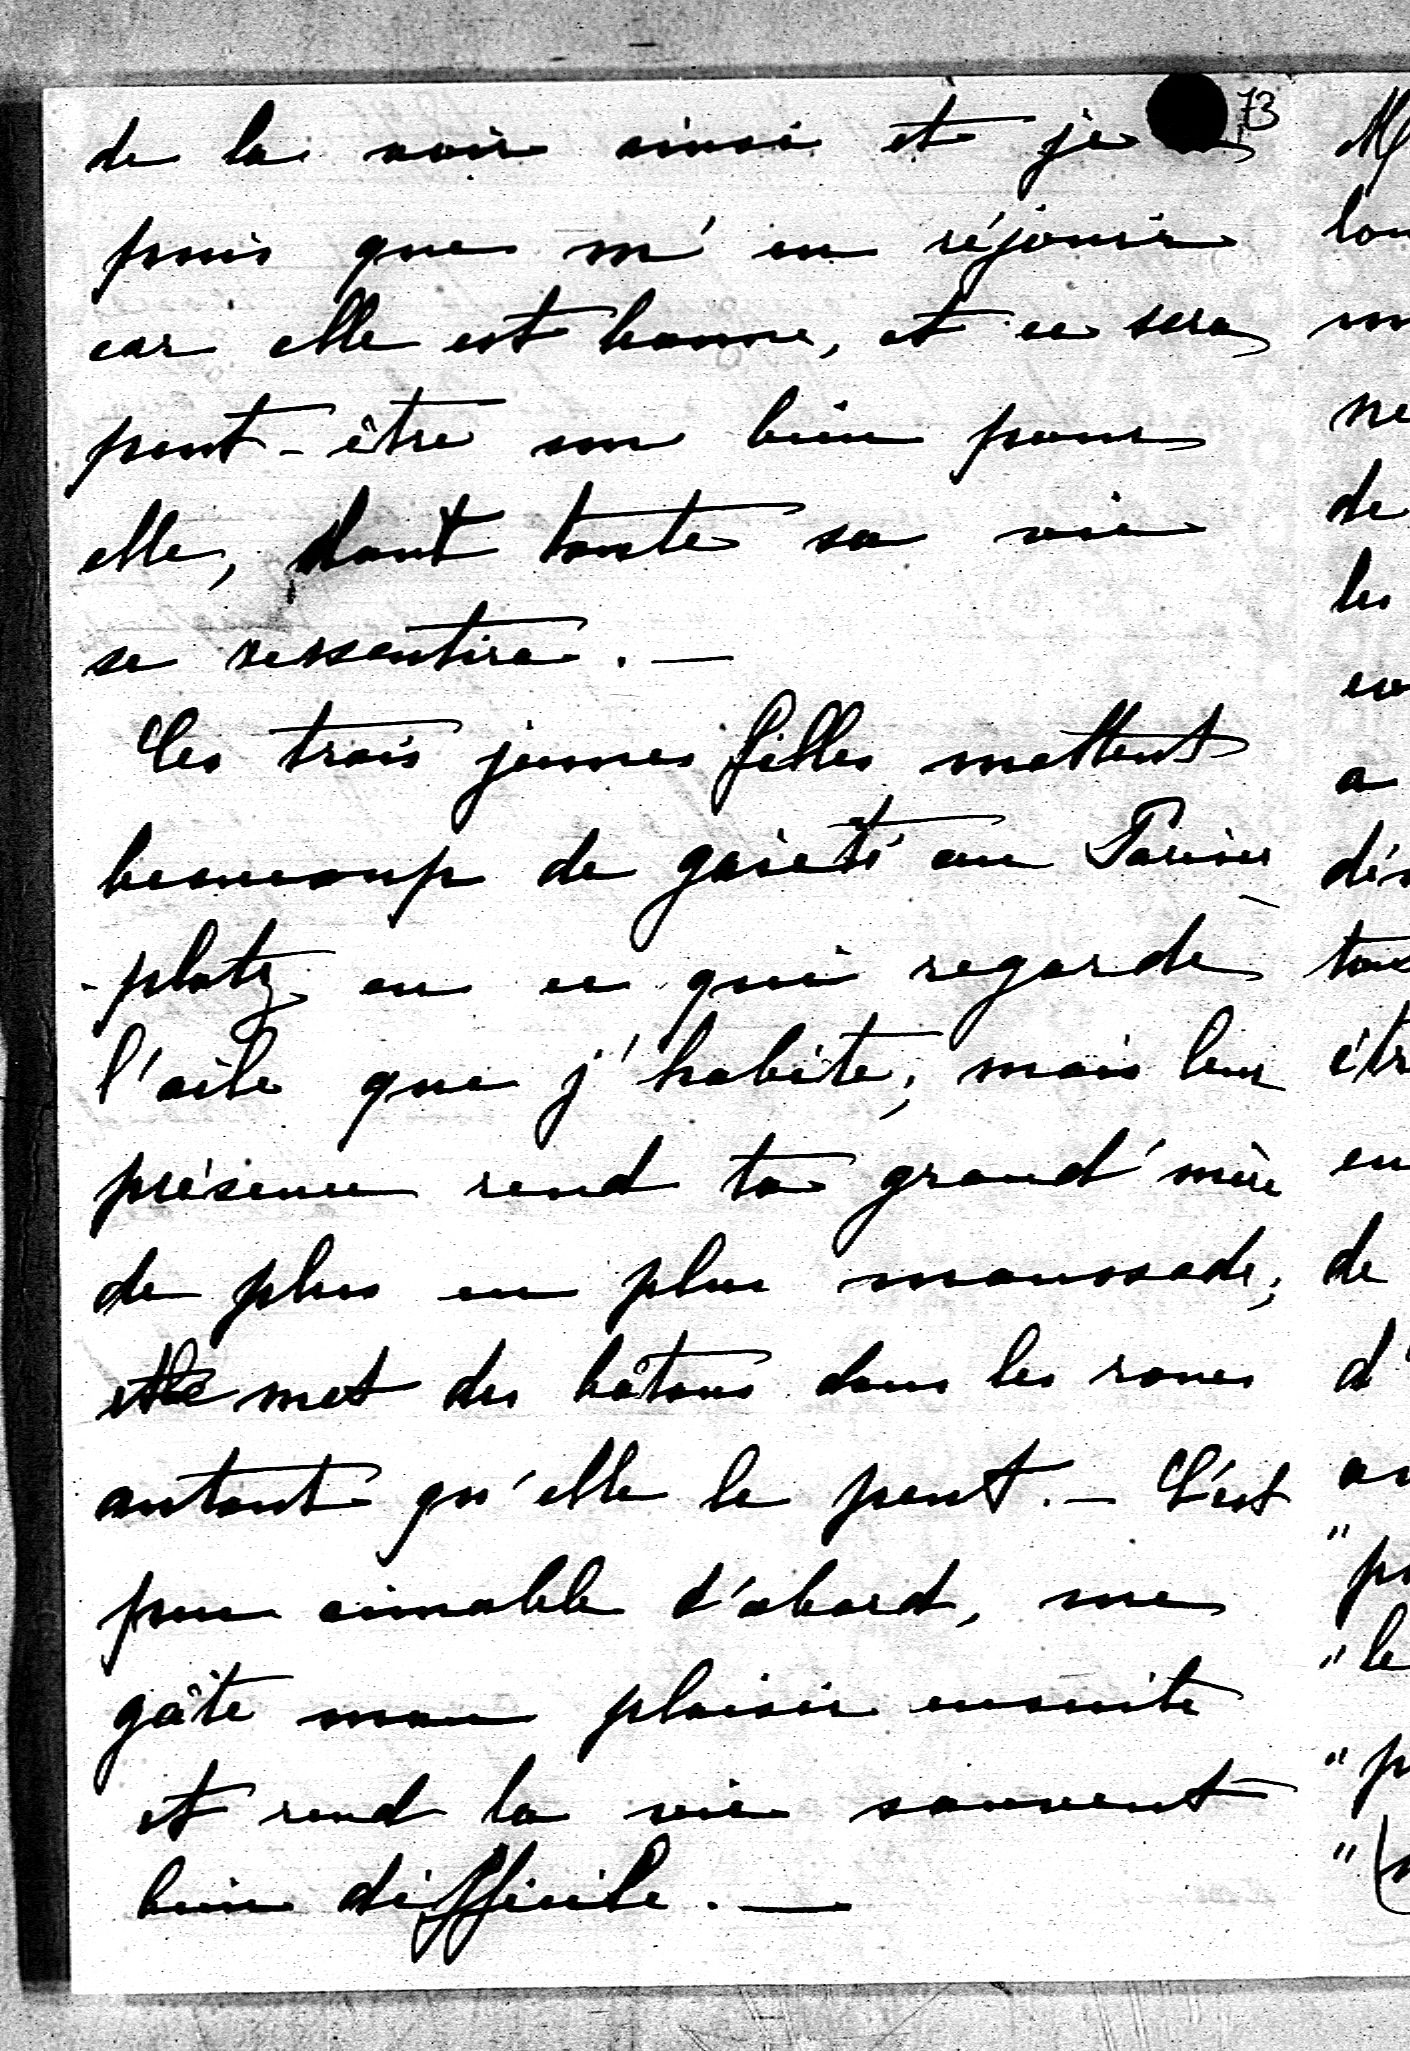 73
de la voir ainsi et je
puis que m'en réjouir
car elle est bonne, et ce sera
peut-être un bien pour
elle, dont toute sa vie
se ressentira. —
Ces trois jeunes filles mettent
beaucoup de gaieté au Pariser
-platz en ce qui regarde
l'aile que j'habite; mais leur
présence rend ta grand'mère
de plus en plus maussade;
elle met des bâtons dans les roues
autant qu'elle le peut. — C'est
peu aimable d'abord, me
gâte mon plaisir ensuite
et rend la vie souvent
bien difficile. —